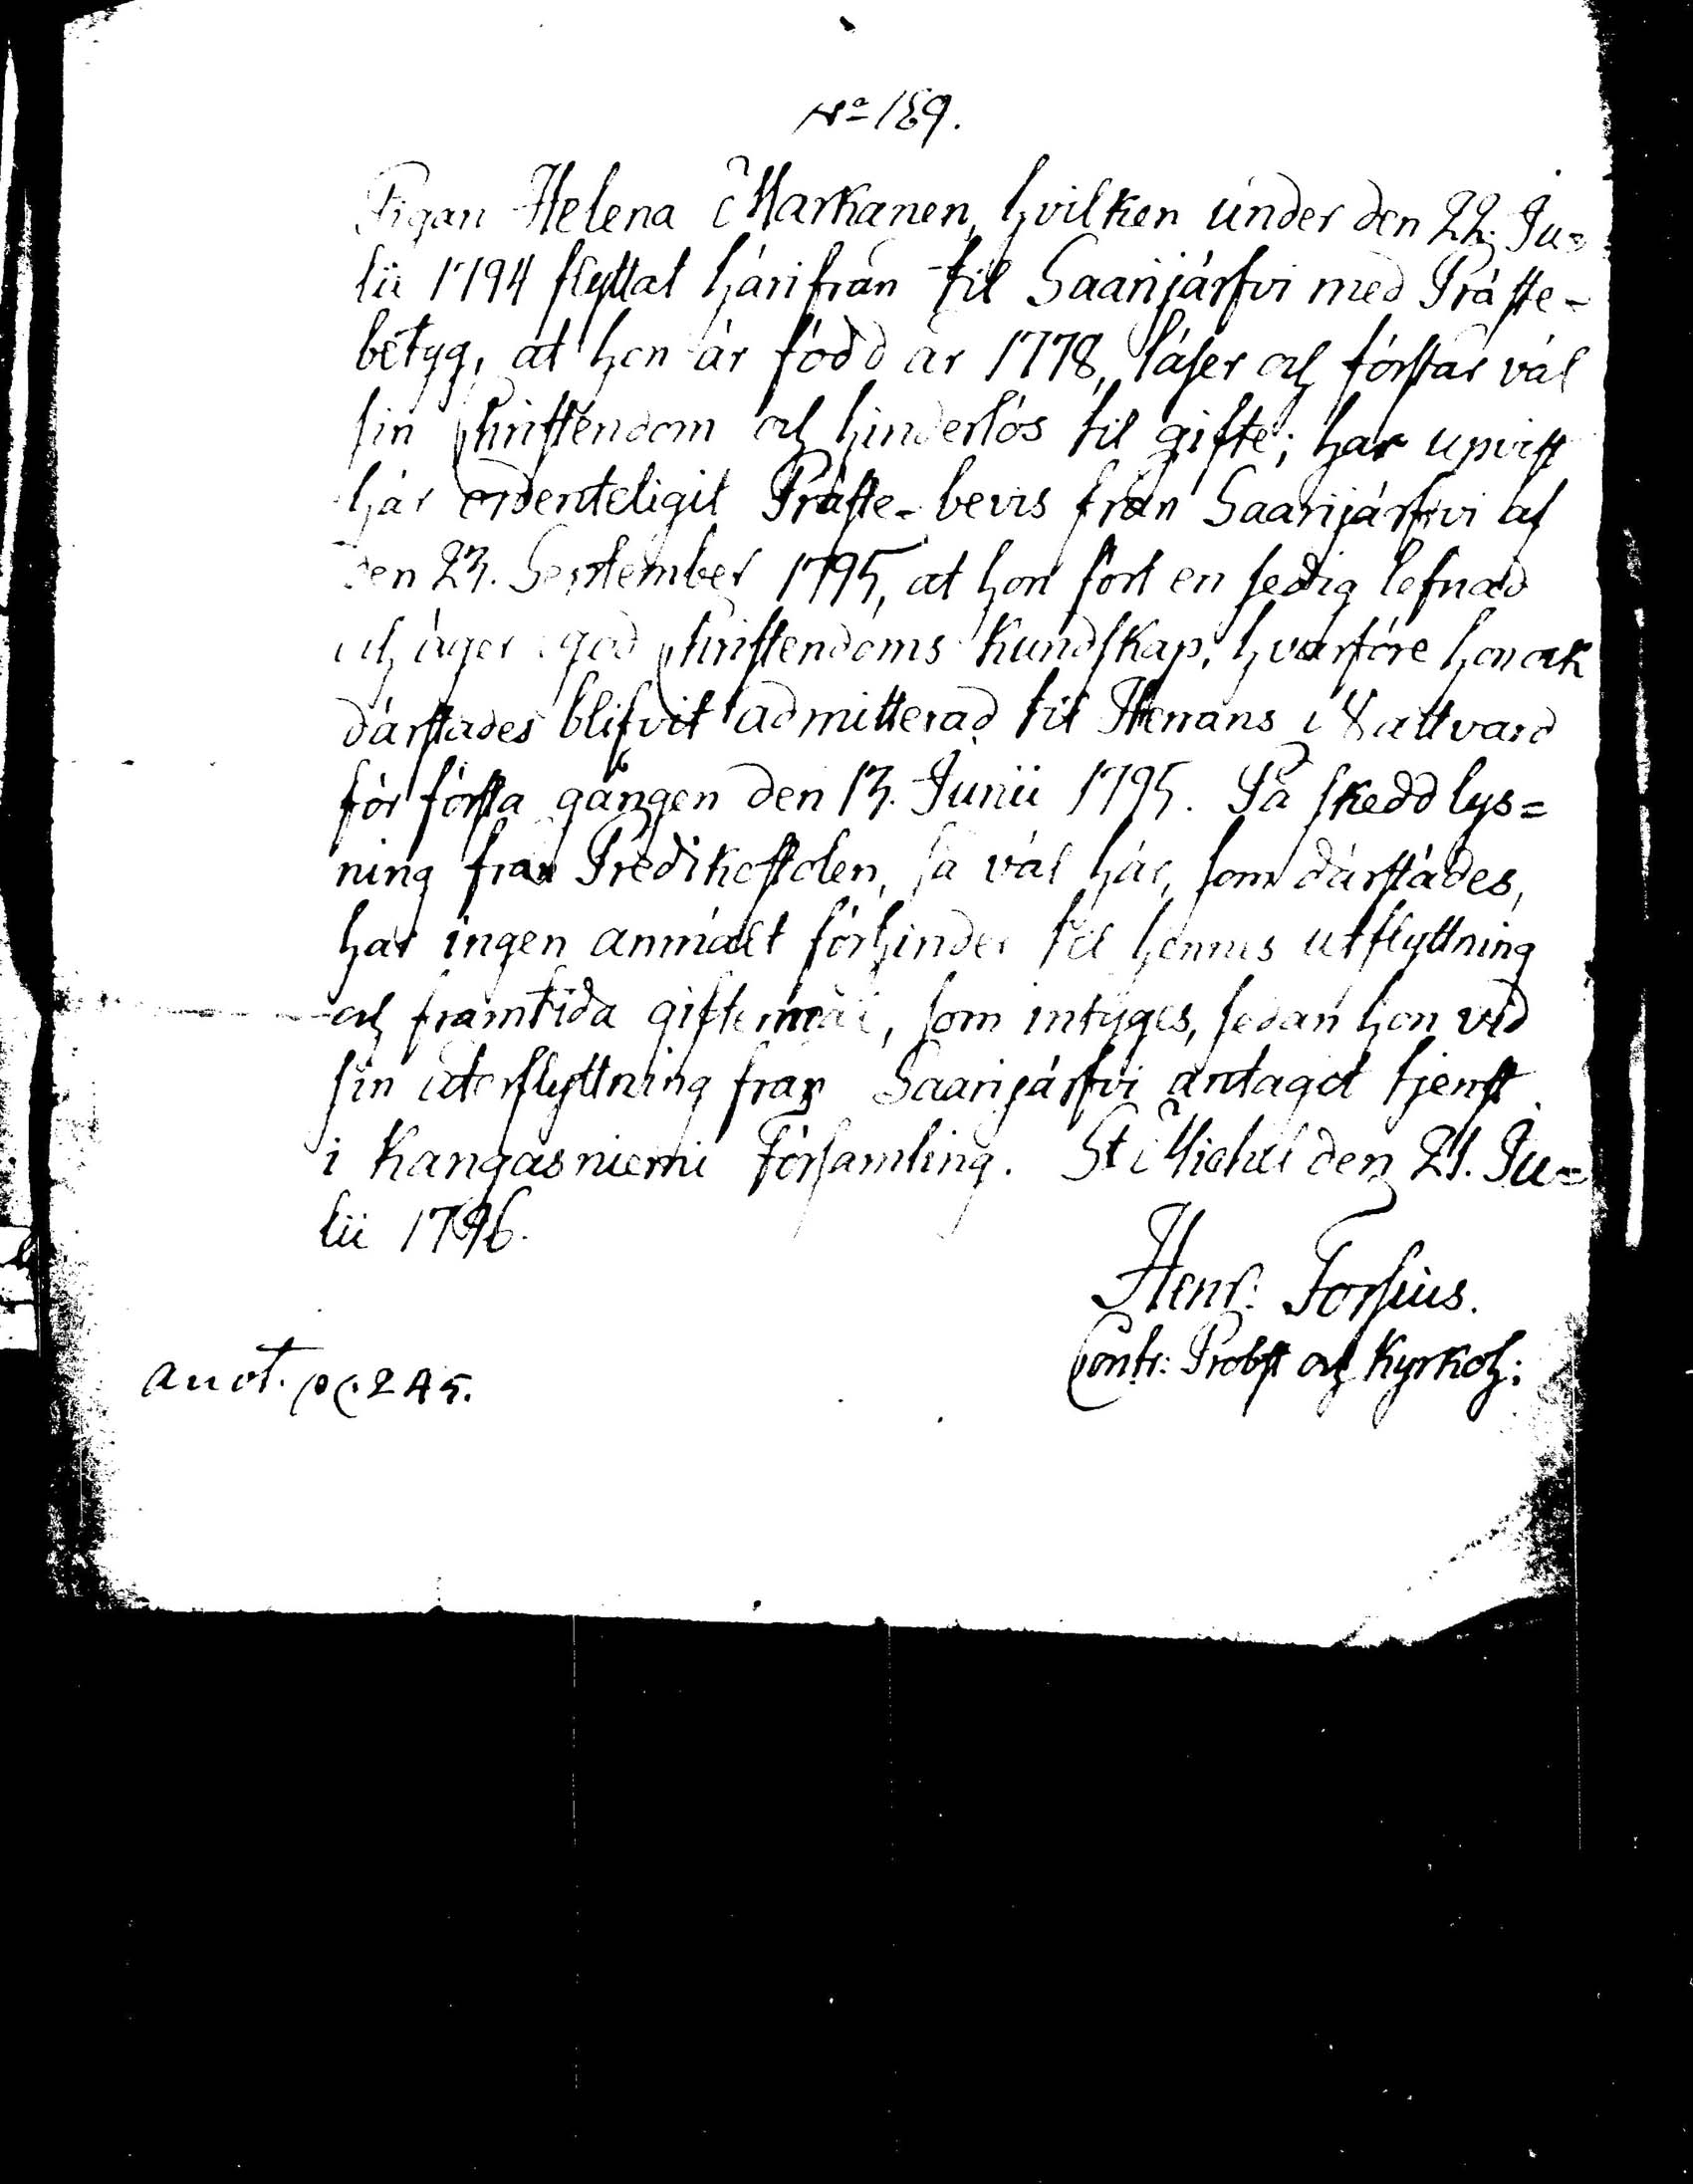 No 189.
Pigan Helena Markanen, hvilken under den 22. Ju=
lii 1794 flyttat härifrån til Saarijärfvi med Präste-
betyg, at hon är född år 1778, läser och förstår väl
sin Christendom och hinderlös til gifte; har upvist
här ordenteligit Präste-bevis från Saarijärfvi af
den 23. September 1795, at hon fört en sedig lefnad
och äger god Christendoms kundskap, hvarföre hon ock
därstädes blifvit admitterad til Herrans Nattvard
för första gången den 13. Junii 1795. På skedd lys=
ning från Predikostolen, så väl här, som därstädes,
har ingen anmält förhinder til hennes utflyttning
och framtida giftermål, som intyges, sedan hon vid
sin återflyttning från Saarijärfvi antagit tjenst
i Kangasniemi Församling. St Michel den 21. Ju=
lii 1796.
Henr: Forsius.
Contr: Probst och Kyrkoh:
annot. p. 245.